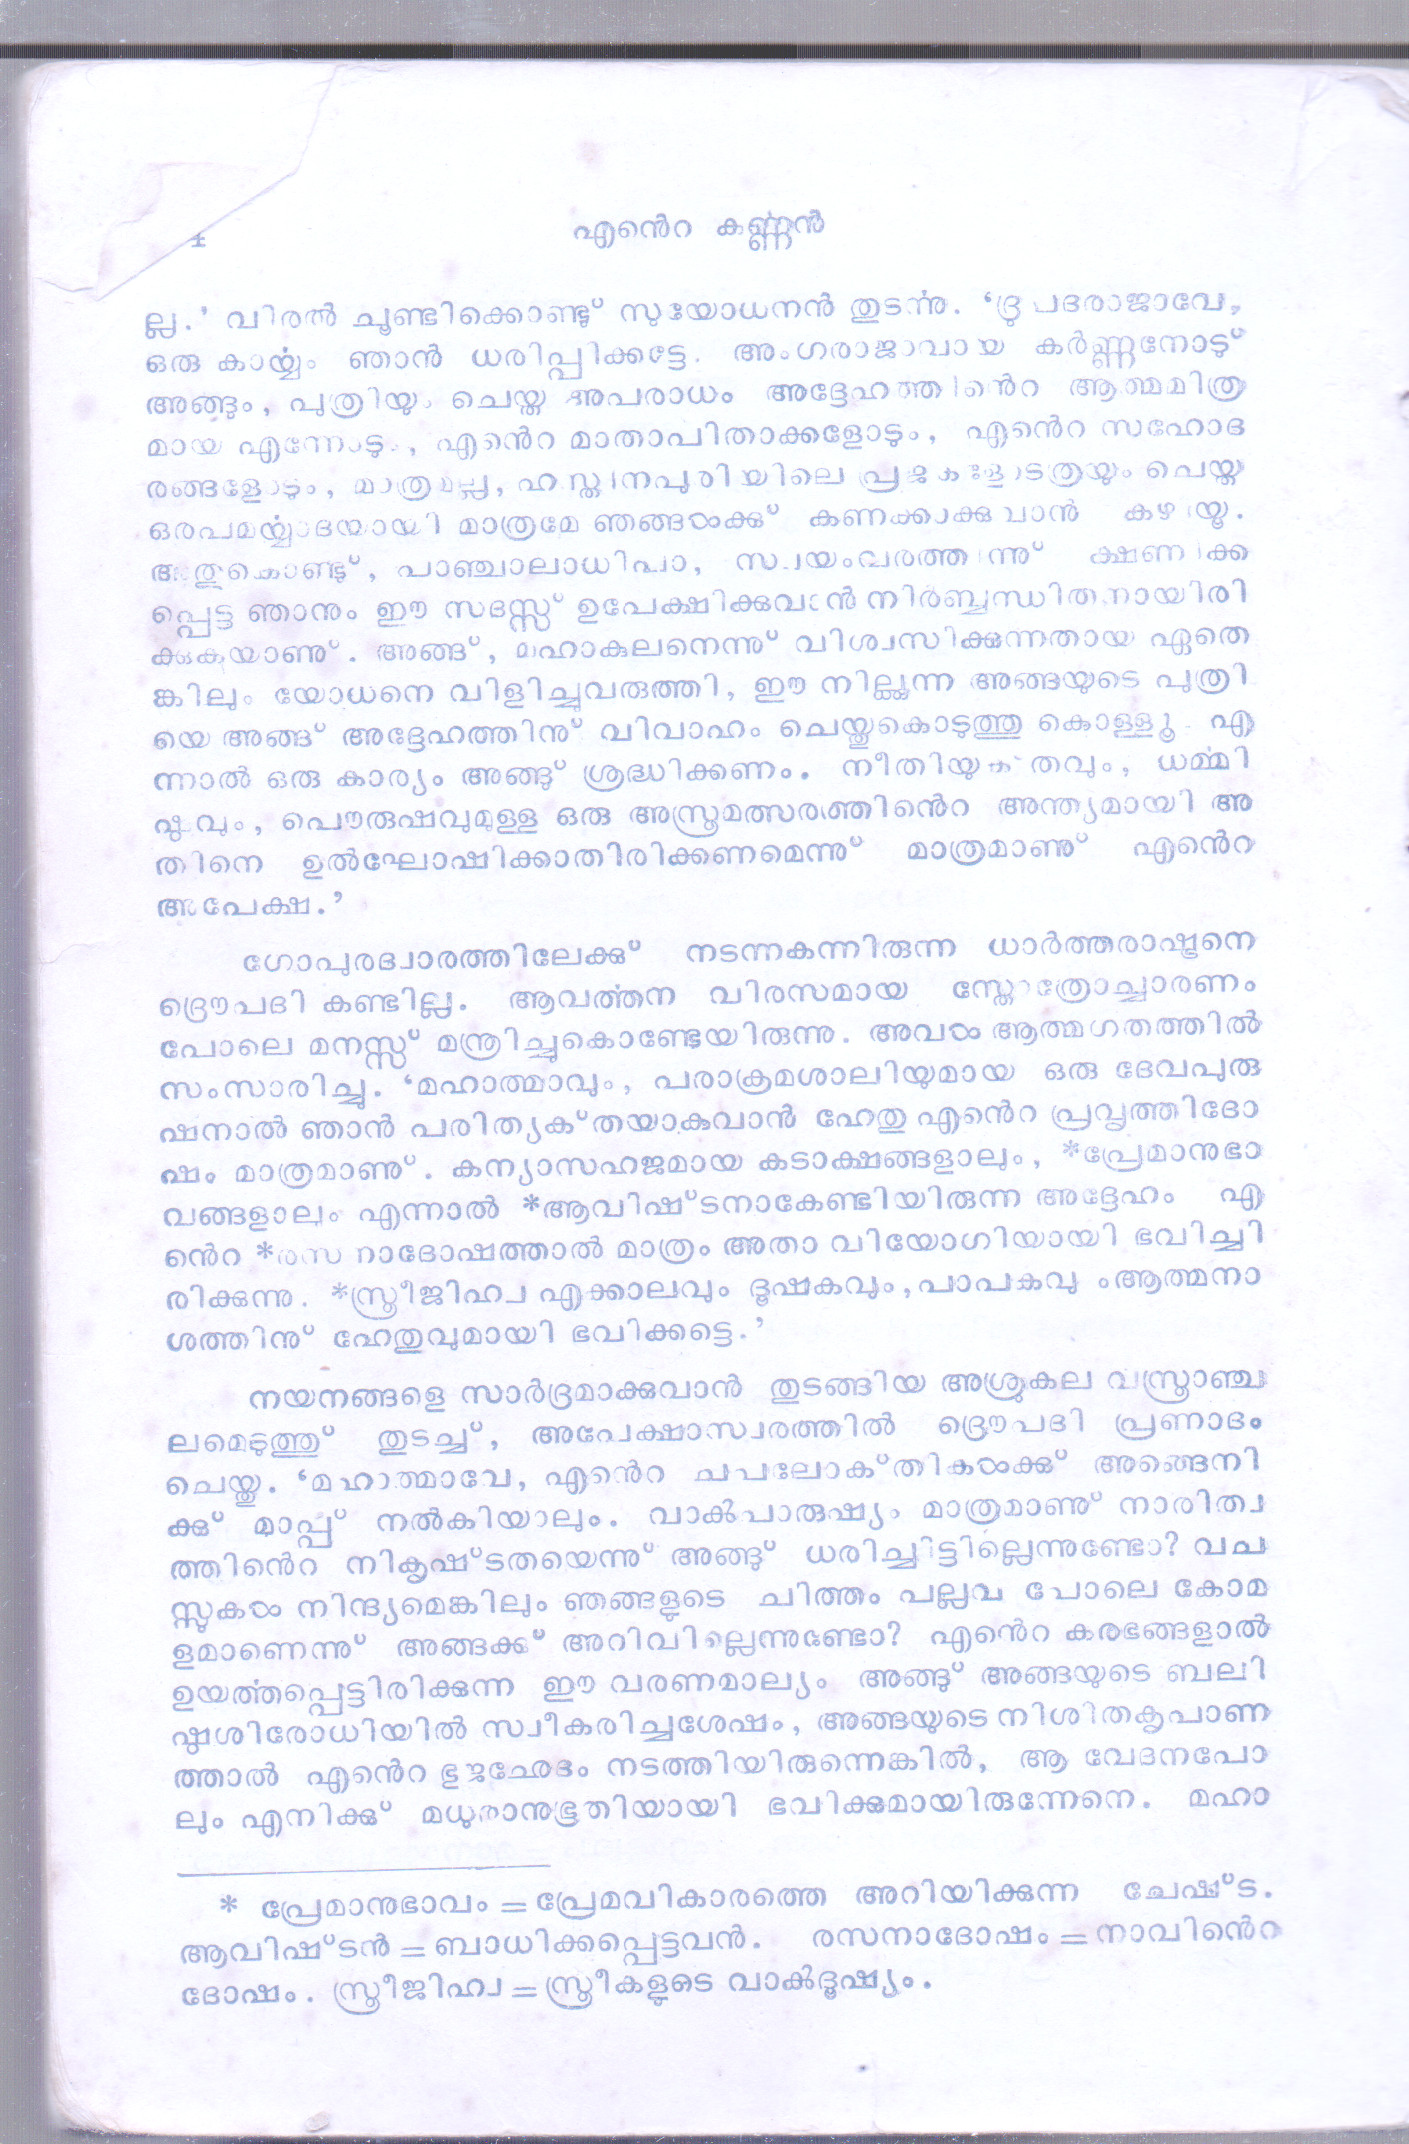 4
എൻെറ കർണ്ണൻ
ല്ല.’ വിരൽ ചൂണ്ടിക്കൊണ്ടു് സുയോധനൻ തുടൎന്നു. ‘ദ്രുപദരാജാവേ,
ഒരു കാൎയ്യം ഞാൻ ധരിപ്പിക്കട്ടേ. അംഗരാജാവായ കർണ്ണനോടു്
അങ്ങും, പുത്രിയും ചെയ്ത അപരാധം അദ്ദേഹത്തിൻെറ ആത്മമിത്ര
മായ എന്നോടും, എൻെറ മാതാപിതാക്കളോടും, എൻെറ സഹോദ
രങ്ങളോടും, മാത്രമല്ല, ഹസ്തിനപുരിയിലെ പ്രജകളോടത്രയും ചെയ്ത
ഒരപമൎയ്യാദയായി മാത്രമേ ഞങ്ങൾക്കു് കണക്കാക്കുവാൻ കഴിയൂ.
അതുകൊണ്ടു്, പാഞ്ചാലാധിപാ, സ്വയംവരത്തിന്നു് ക്ഷണിക്ക
പ്പെട്ട ഞാനും ഈ സദസ്സ് ഉപേക്ഷിക്കുവാൻ നിർബ്ബന്ധിതനായിരി
ക്കുകയാണു്. അങ്ങ്, മഹാകുലനെന്നു് വിശ്വസിക്കുന്നതായ ഏതെ
ങ്കിലും യോധനെ വിളിച്ചുവരുത്തി, ഈ നില്ക്കുന്ന അങ്ങയുടെ പുത്രി
യെ അങ്ങ് അദ്ദേഹത്തിനു് വിവാഹം ചെയ്തുകൊടുത്തു കൊള്ളൂ. എ
ന്നാൽ ഒരു കാര്യം അങ്ങു് ശ്രദ്ധിക്കണം. നീതിയുക്തവും, ധൎമ്മി
ഷ്ഠവും, പൌരുഷവുമുള്ള ഒരു അസ്ത്രമത്സരത്തിൻെറ അന്ത്യമായി അ
തിനെ ഉൽഘോഷിക്കാതിരിക്കണമെന്നു് മാത്രമാണു് എൻെറ
അപേക്ഷ.’
ഗോപുരദ്വാരത്തിലേക്കു് നടന്നകന്നിരുന്ന ധാർത്തരാഷ്ട്രനെ
ദ്രൌപദി കണ്ടില്ല. ആവൎത്തന വിരസമായ സ്തോത്രോച്ചാരണം
പോലെ മനസ്സ് മന്ത്രിച്ചുകൊണ്ടേയിരുന്നു. അവൾ ആത്മഗതത്തിൽ
സംസാരിച്ചു. ‘മഹാത്മാവും, പരാക്രമശാലിയുമായ ഒരു ദേവപുരു
ഷനാൽ ഞാൻ പരിത്യക്തയാകുവാൻ ഹേതു എൻെറ പ്രവൃത്തിദോ
ഷം മാത്രമാണു്. കന്യാസഹജമായ കടാക്ഷങ്ങളാലും, *പ്രേമാനുഭാ
വങ്ങളാലും എന്നാൽ *ആവിഷ്ടനാകേണ്ടിയിരുന്ന അദ്ദേഹം എ
ൻെറ *രസനാദോഷത്താൽ മാത്രം അതാ വിയോഗിയായി ഭവിച്ചി
രിക്കുന്നു. *സ്ത്രീജിഹ്വ എക്കാലവും ദൂഷകവും, പാപകവു ംആത്മനാ
ശത്തിനു് ഹേതുവുമായി ഭവിക്കട്ടെ.’
നയനങ്ങളെ സാർദ്രമാക്കുവാൻ തുടങ്ങിയ അശ്രുകല വസ്ത്രാഞ്ച
ലമെടുത്തു് തുടച്ച്, അപേക്ഷാസ്വരത്തിൽ ദ്രൌപദി പ്രണാദം
ചെയ്തു. ‘മഹാത്മാവേ, എൻെറ ചപലോക്തികൾക്കു് അങ്ങെനി
ക്കു് മാപ്പ് നൽകിയാലും. വാൿപാരുഷ്യം മാത്രമാണു് നാരിത്വ
ത്തിൻെറ നികൃഷ്ടതയെന്നു് അങ്ങു് ധരിച്ചിട്ടില്ലെന്നുണ്ടോ? വച
സ്സുകൾ നിന്ദ്യമെങ്കിലും ഞങ്ങളുടെ ചിത്തം പല്ലവ പോലെ കോമ
ളമാണെന്നു് അങ്ങക്ക് അറിവില്ലെന്നുണ്ടോ? എൻെറ കരഭങ്ങളാൽ
ഉയൎത്തപ്പെട്ടിരിക്കുന്ന ഈ വരണമാല്യം അങ്ങു് അങ്ങയുടെ ബലി
ഷ്ഠശിരോധിയിൽ സ്വീകരിച്ചശേഷം, അങ്ങയുടെ നിശിതകൃപാണ
ത്താൽ എൻെറ ഭുജഛേദം നടത്തിയിരുന്നെങ്കിൽ, ആ വേദനപോ
ലും എനിക്കു് മധുരാനുഭൂതിയായി ഭവിക്കുമായിരുന്നേനെ. മഹാ
* പ്രേമാനുഭാവം = പ്രേമവികാരത്തെ അറിയിക്കുന്ന ചേഷ്ട.
ആവിഷ്ടൻ = ബാധിക്കപ്പെട്ടവൻ. രസനാദോഷം = നാവിൻെറ
ദോഷം. സ്ത്രീജിഹ്വ = സ്ത്രീകളുടെ വാൿദൂഷ്യം.